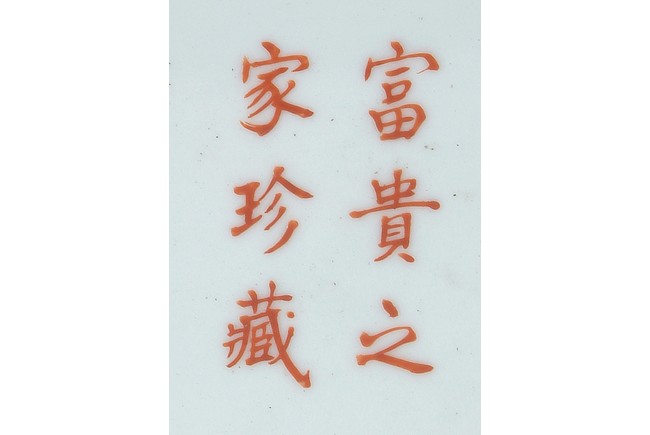 富貴之
家珍藏